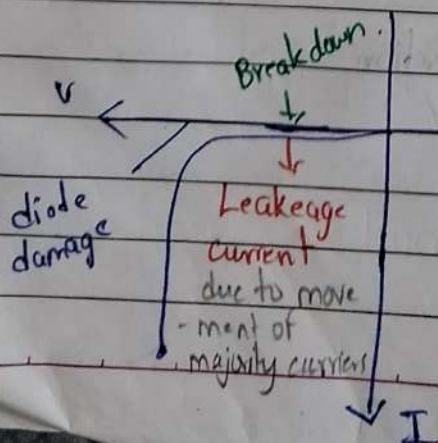 Breakdown.
V
diode
damage
Leakeage
current
due to move
-ment of
majority curriers
I